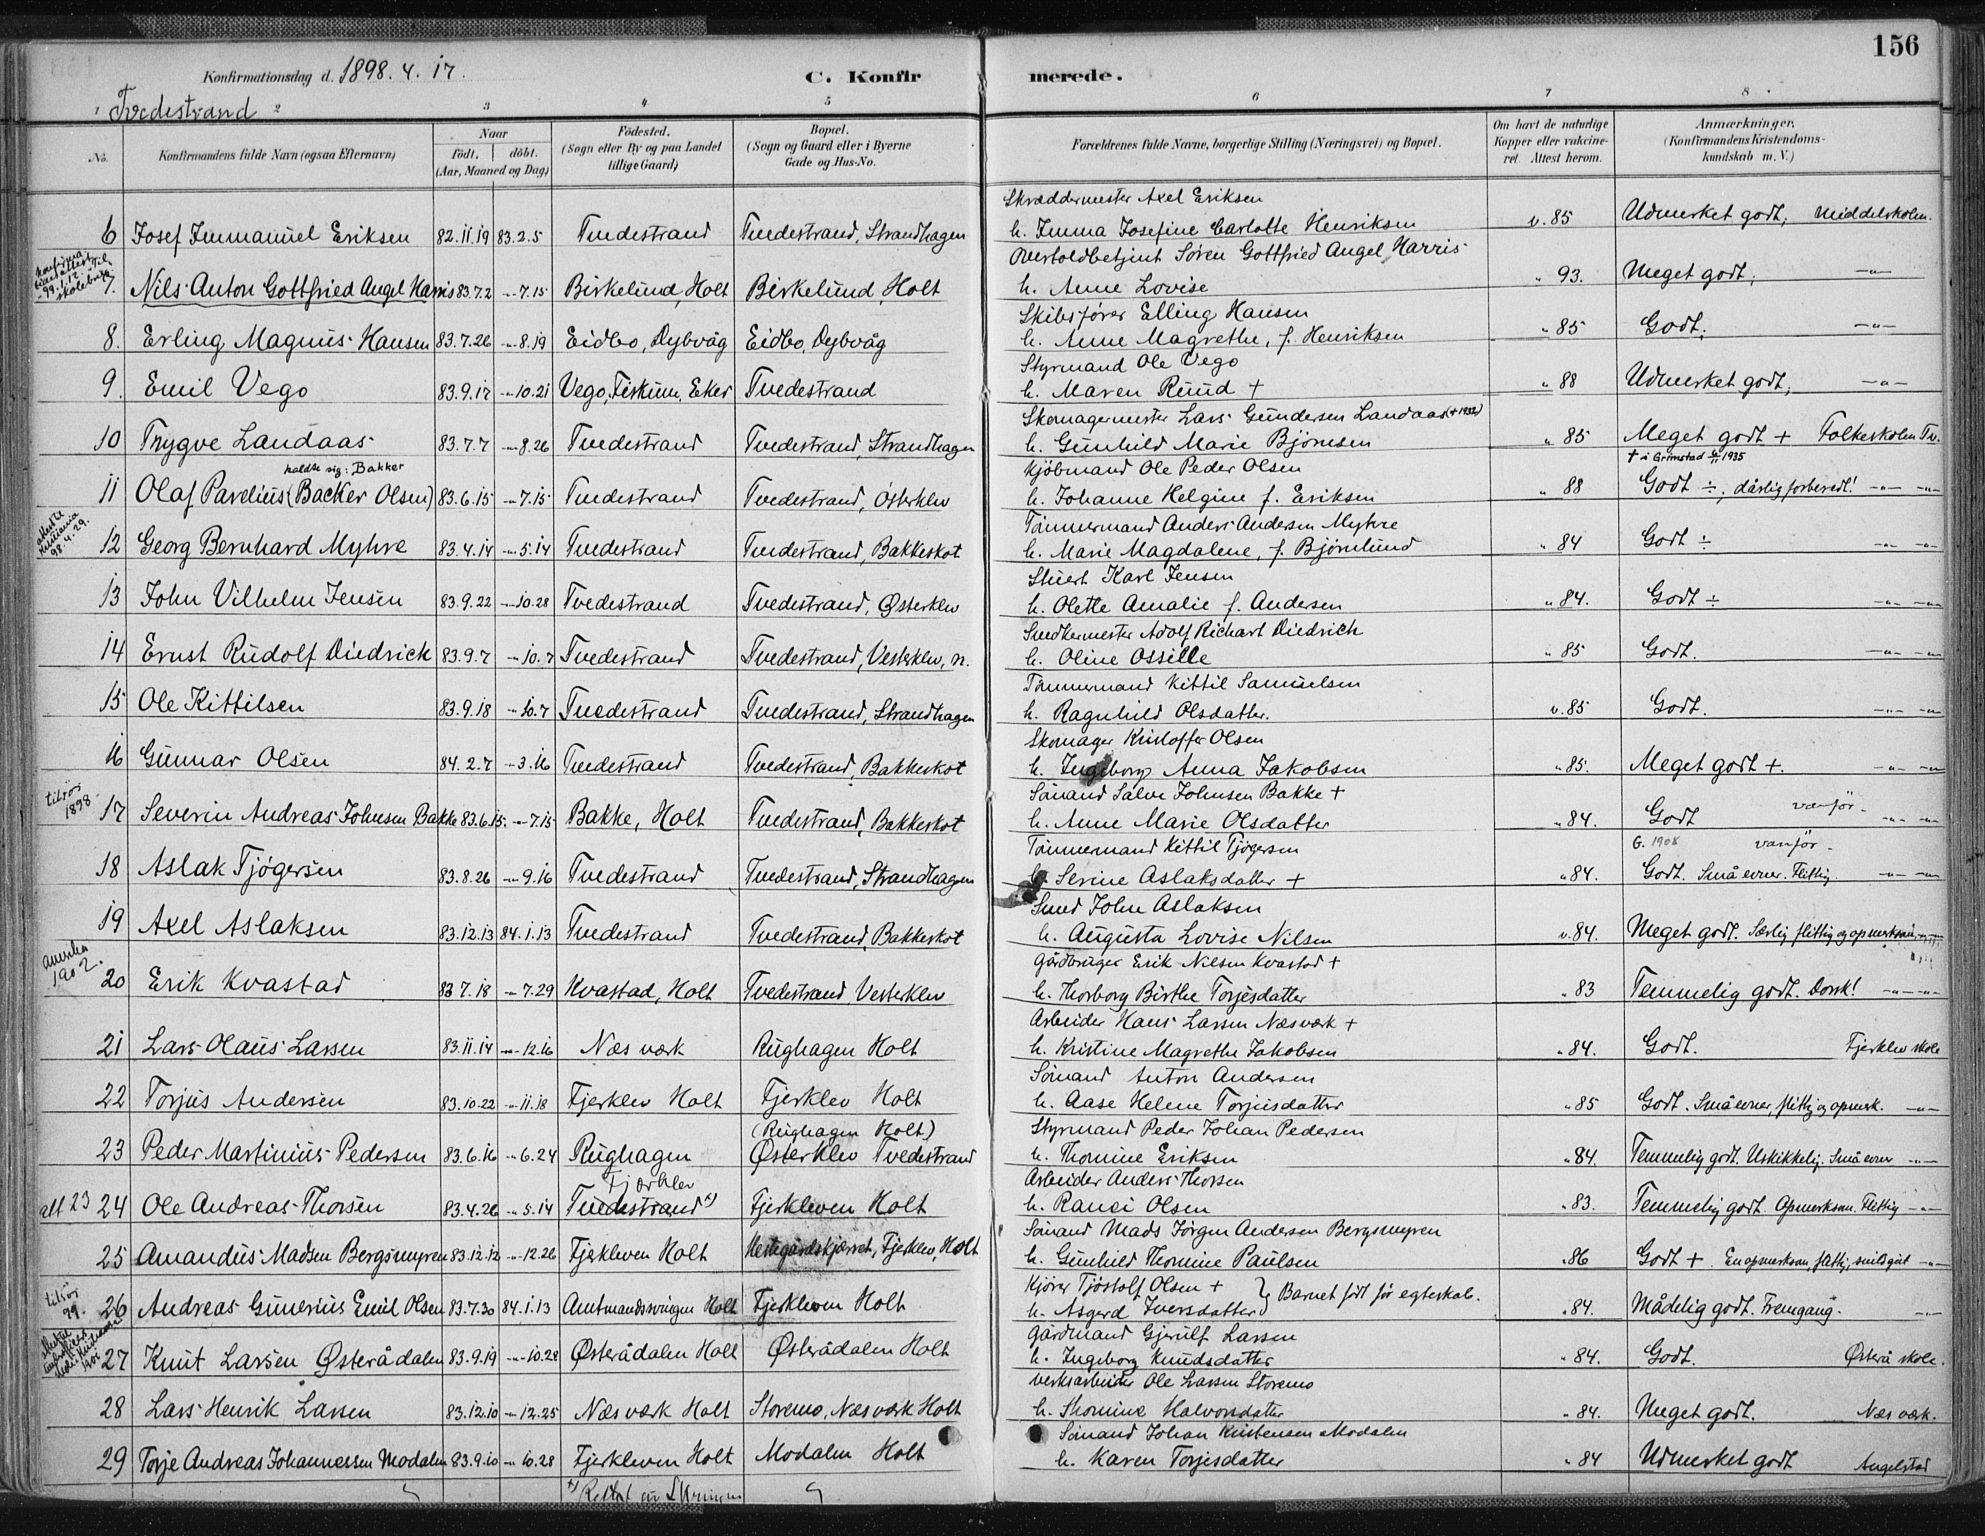 156
Konfirmationsdag d. 1898. 4. 17.
C. Konfirmerede.
Tvedestrand
1 2 3 4 5 6 7 8
No.
Konfirmandens fulde Navn (ogsaa Efternavn)
Naar
födt. döbt.
(Aar, Maaned og Dag)
Födested.
(Sogn eller By og paa Landet tillige Gaard)
Bopæl.
(Sogn og Gaard eller i Byerne Gade og Hus-No.
Forældrenes fulde Navne, borgerlige Stilling (Næringsvei) og Bopæl.
Om havt de naturlige Kopper eller vakcineret. Attest herom.
Anmærkninger.
(Konfirmandens Kristendomskundskab m. V.)
Skræddermester Axel Eriksen
6 Josef Immanuel Eriksen 82.11.19 83.2.5 Tvedestrand Tvedestrand, Strandhagen h. Emma Josefine Carlotte Henriksen v. 85 Udmerket godt; Middelskolen.
Overtoldbetjent Søren Gottfried Angel Harris
7. Nils Anton Gottfried Angel Harris 83.7.2 -"-7.15 Birkelund, Holt Birkelund, Holt h. Anne Lovise " 93. Meget godt; -"-
Skibsfører Elling Hansen
8. Erling Magnus Hansen 83.7.26 -"-8.19 Eidbo, Dybvåg Eidbo, Dybvåg h. Anne Magrethe, f. Henriksen " 85 Godt; -"-
Styrmand Ole Vego
9. Emil Vego 83.9.17 -"-10.21 Vego, Fiskum, Eker Tvedestrand h. Maren Ruud + " 88 Udmerket godt; -"-
Skomagermester Lars Gundersen Landaas (+ 1932)
10 Trygve Landaas 83.7.7 -"-8.26 Tvedestrand Tvedestrand, Strandhagen h. Gunhild Marie Bjørnsen " 85 Meget godt + Folkeskolen Tv.
kaldte sig: Bakker Kjöbmand Ole Peder Olsen + i Grimstad 1935
11 Olaf Parelius (Backer Olsen) 83.6.15 -"-7.15 Tvedestrand Tvedestrand, Østerklev h. Johanne Helgine f. Eriksen " 88 Godt ÷; dårlig forberedt! -"- -"-
98.4.29. Tömmermand Anders Andersen Myhre
12 Georg Bernhard Myhre 83.4.14 -"-5.14 Tvedestrand Tvedestrand, Bakkeskot h. Marie Magdalene, f. Bjørnlund " 84 Godt ÷ -"- -"-
Stuert Karl Jensen
13 John Vilhelm Jensen 83.9.22 -"-10.28 Tvedestrand Tvedestrand, Østerklev h. Olette Amalie f. Andersen " 84. Godt ÷ -"- -"-
Snedkermester Adolf Richart Diedrich
14 Ernst Rudolf Diedrick 83.9.7 -"-10.7 Tvedestrand Tvedestrand, Vesterklev, n. h. Oline Ossille " 85 Godt. -"- -"-
Tömmermand Kittil Samuelsen
15 Ole Kittilsen 83.9.18 -"-10.7 Tvedestrand Tvedestrand, Strandhagen h. Ragnhild Olsdatter. v. 85 Godt. -"- -"-
Skomager Kristoffer Olsen
16 Gunnar Olsen 84.2.7 -"-3.16 Tvedestrand Tvedestrand, Bakkeskot h. Ingeborg Anna Jakobsen " 85. Meget godt +. -"- -"-
tilsjös 1898 Sömand Salve Johnsen Bakke +
17 Severin Andreas Johnsen Bakke 83.6.15. -"-7.15 Bakke, Holt Tvedestrand, Bakkeskot h. Anne Marie Olsdatter " 84. Godt vanför. -"- -"-
Tömmermand Kittil Tjögersen G. 1908 vanför.
18 Aslak Tjögersen 83.8.26 -"-9.16 Tvedestrand Tvedestrand, Strandhagen h. Serine Aslaksdatter + " 84. Godt. Små evner. Flittig. -"- -"-
Smed John Aslaksen
19 Axel Aslaksen 83.12.13 84.1.13 Tvedestrand Tvedestrand, Bakkeskot h. Augusta Lovise Nilsen v. 84. Meget godt. Særlig flittig og opmerksom
Amerika 1902. Gårdbruger Erik Nilsen Kvastad +
20 Erik Kvastad 83.7.18 -"-7.29 Kvastad, Holt Tvedestrand Vesterklev h. Thorborg Birthe Torjesdatter " 83 Temmelig godt. Dorsk! -"- -"-
Arbeider Hans Larsen Næsværk +
21 Lars Olaus Larsen 83.11.14 -"-12.16 Næsværk Rughagen Holt h. Kristine Magrethe Jakobsen " 84. Godt. Fjerklev skole
Sömand Anton Andersen
22 Torjus Andersen 83.10.22 -"-11.18 Fjerklev Holt Fjerklev Holt h. Aase Helene Torjusdatter " 85 Godt. Små evner, flittig og opmerk. -"-
(Rughagen Holt) Styrmand Peder Johan Pedersen
23 Peder Martinius Pedersen 83.6.16 -"-6.24 Rughagen Østerklev Tvedestrand h. Thomine Eriksen " 84. Temmelig godt. Uskikkelig. Små evner -"-
Fjærklev Arbeider Anders Thorsen
alt 23 24 Ole Andreas Thorsen 83.4.26 -"-5.14 Tvedestrand x) Fjerkleven Holt h. Ranei Olsen " 83. Temmelig godt. Opmerksom. Flittig -"-
Sömand Mads Jörgen Andersen Bergsmyren
25 Amandus Madsen Bergsmyren 83.12.12 -"-12.26 Fjerkleven Holt Hestegårdskjærret, Fjerklev, Holt h. Gunhild Thomine Paulsen " 86 Godt + En opmerksom, flittig, snild gut -"-
tilsjös 99. Kjörer Tjöstolf Olsen + } Barnet född før egteskab.
26 Andreas Gunerius Emil Olsen 83.7.30 84.1.13 Amtmandssvingen Holt Fjerkleven Holt h. Asgerd Iversdatter " 84. Mådelig godt. Fremgang. -"-
Gårdmand Gjerulf Larsen
27 Knut Larsen Østerådalen 83.9.19 -"-10.28 Østerådalen Holt Østerådalen Holt h. Ingeborg Knudsdatter " 84. Godt. Østerå skole.
Verksarbeider Ole Larsen Storemo
28 Lars Henrik Larsen 83.12.10 -"-12.25 Næsværk Holt Storemo, Næsværk Holt h. Thomine Halvorsdatter " 84. Meget godt. Næsværk.
Sömand Johan Kristensen Modalen
29 Torje Andreas Johannessen Modalen 83.9.10 -"-10.28 Fjerkleven Holt Modalen Holt h. Karen Torjesdatter " 84 Udmerket godt Angelstad
x) Rettet